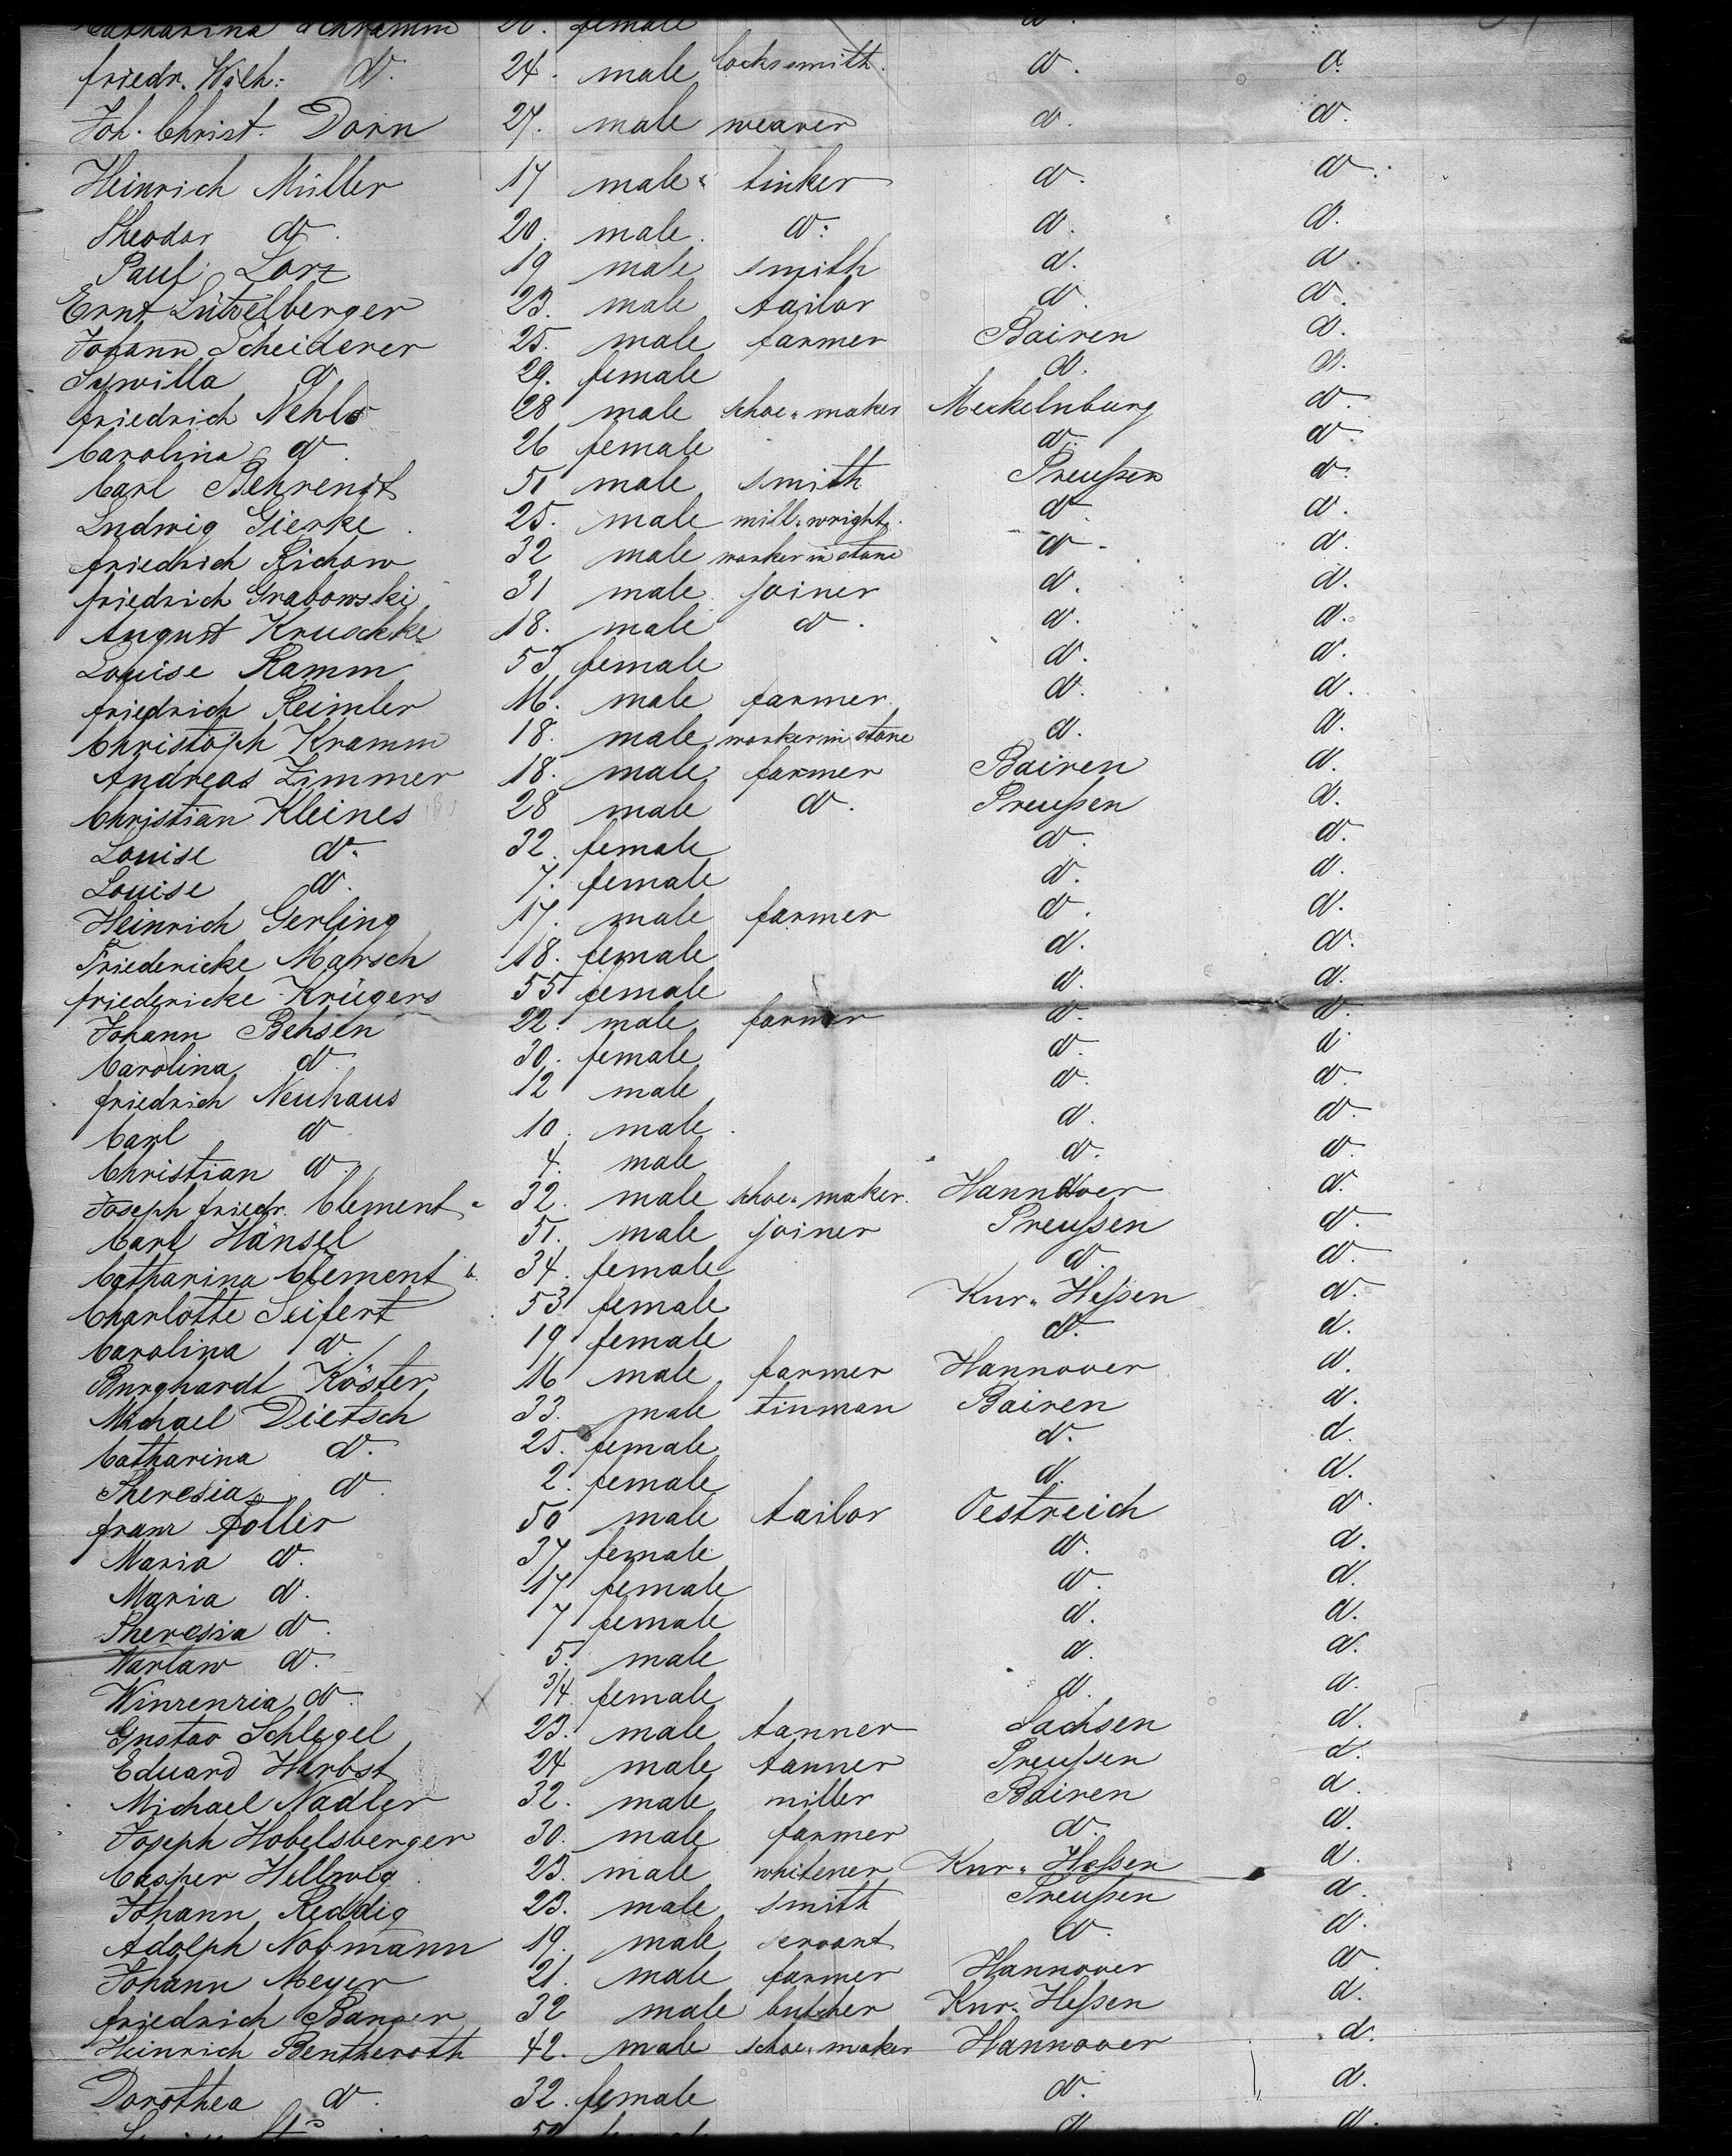 Catharina Schramm 26. female d.
friedr. Wilh: d. 24. male locksmith. d. d.
Joh. Christ. Dorn 27. male weaver d. d.
Heinrich Müller 17 male tinker d. d.
Theodor d. 20. male d. d. d.
Paul Lorz 19 male smith d. d.
Ernt Lützelberger 23. male tailor d. d.
Johann Scheiderer 25. male farmer Bairen d.
Sywilla d 29. female d. d.
friedrich Nehls 28 male shoe=maker Meckelnburg d.
Carolina d. 26 female d. d.
Carl Behrendt 51 male smith Preußen d.
Ludwig Gierke 25. male mill=wright. d. d.
friedrich Richow 32 male worker in stone d. d.
friedrich Grabowski 31 male joiner d. d.
August Kruschke 18. male d. d. d.
Louise Ramm 53 female d. d.
friedrich Reimler 16. male farmer d. d.
Christoph Kramm 18. male worker in stone d. d.
Andreas Zimmer 18. male farmer Bairen d.
Christian Kleines 28 male d. Preußen d.
Louise d. 32. female d. d.
Louise d. 7. female d. d.
Heinrich Gerling 17. male farmer d. d.
Friedericke Marsch 18. female d. d.
friedericke Krügers 55 female d. d.
Johann Behsen 22. male farmer d. d.
Carolina d 30. female d. d.
friedrich Neuhaus 12 male d. d.
Carl d 10. male d. d.
Christian d. 4. male d. d.
Joseph friedr. Clement 32. male shoe=maker. Hannover d.
Carl Hänsel 51. male joiner Preußen d.
Catharina Clement 34. female d. d.
Charlotte Seifert 53 female Kur=Heßen d.
Carolina d. 19 female d. d.
Burghardt Köster 16 male farmer Hannover d.
Michael Dietsch 33. male tinman Bairen d.
Catharina d. 25. female d. d.
Theresia d. 2. female d. d.
franz Foller 50 male tailor Oestreich d.
Maria d. 37 female d. d.
Maria d. 17 female d. d.
Theresia d. 7 female d. d.
Warlaw d. 5. male d. d.
Winzenzia d. 3/4. female d. d.
Gustav Schlegel 23. male tanner Sachsen d.
Eduard Herbst 24 male tanner Preußen d.
Michael Nadler 32. male miller Bairen d.
Joseph Hobelsberger 30. male farmer d. d.
Casper Hellwig 23. male whitener Kur=Heßen d.
Johann Reddig 23. male smith Preußen d.
Adolph Nobmann 19. male servant d. d.
Johann Meyer 21. male farmer Hannover d.
friedrich Banzer 32 male butcher Kur=Heßen d.
Heinrich Bentheroth 42. male schoe=maker Hannover d.
Dorothea d. 32. female d. d.